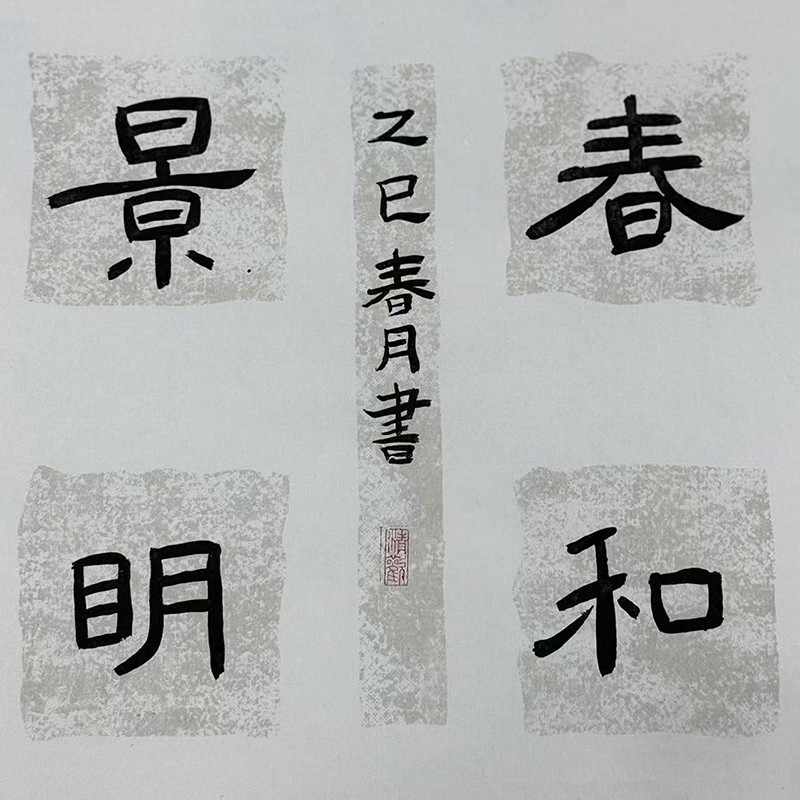 春和
景明
乙巳春月書
清觀